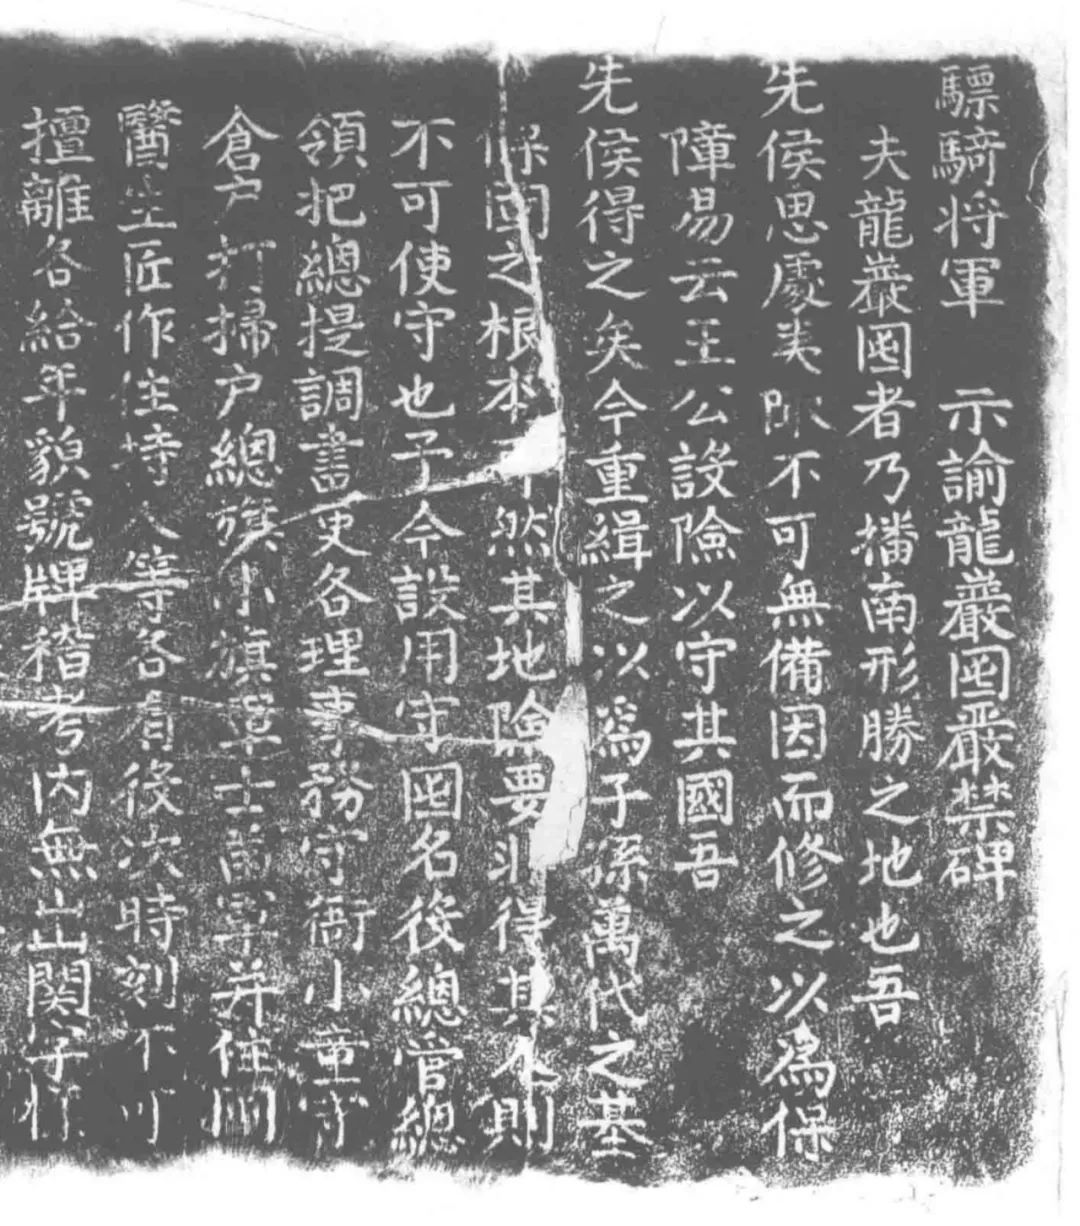 驃騎将軍　示諭龍巖囤嚴禁碑
夫龍巖囤者乃播南形勝之地也吾
先侯思處夷 不可無備因而修之以為保
障易云王公設險以守其國吾
先侯得之矣今重緝之以為子孫萬代之基
保固之根本 然其地險要非得其人則
不可使守也予今設用守囤名後總管總
領把總提調書吏各理事務守衙小童守
倉户打掃户總旗小旗軍士 軍并住
醫生匠作住持人等各有後次時刻不可
擅離各給年貌號牌稽考内無出関字